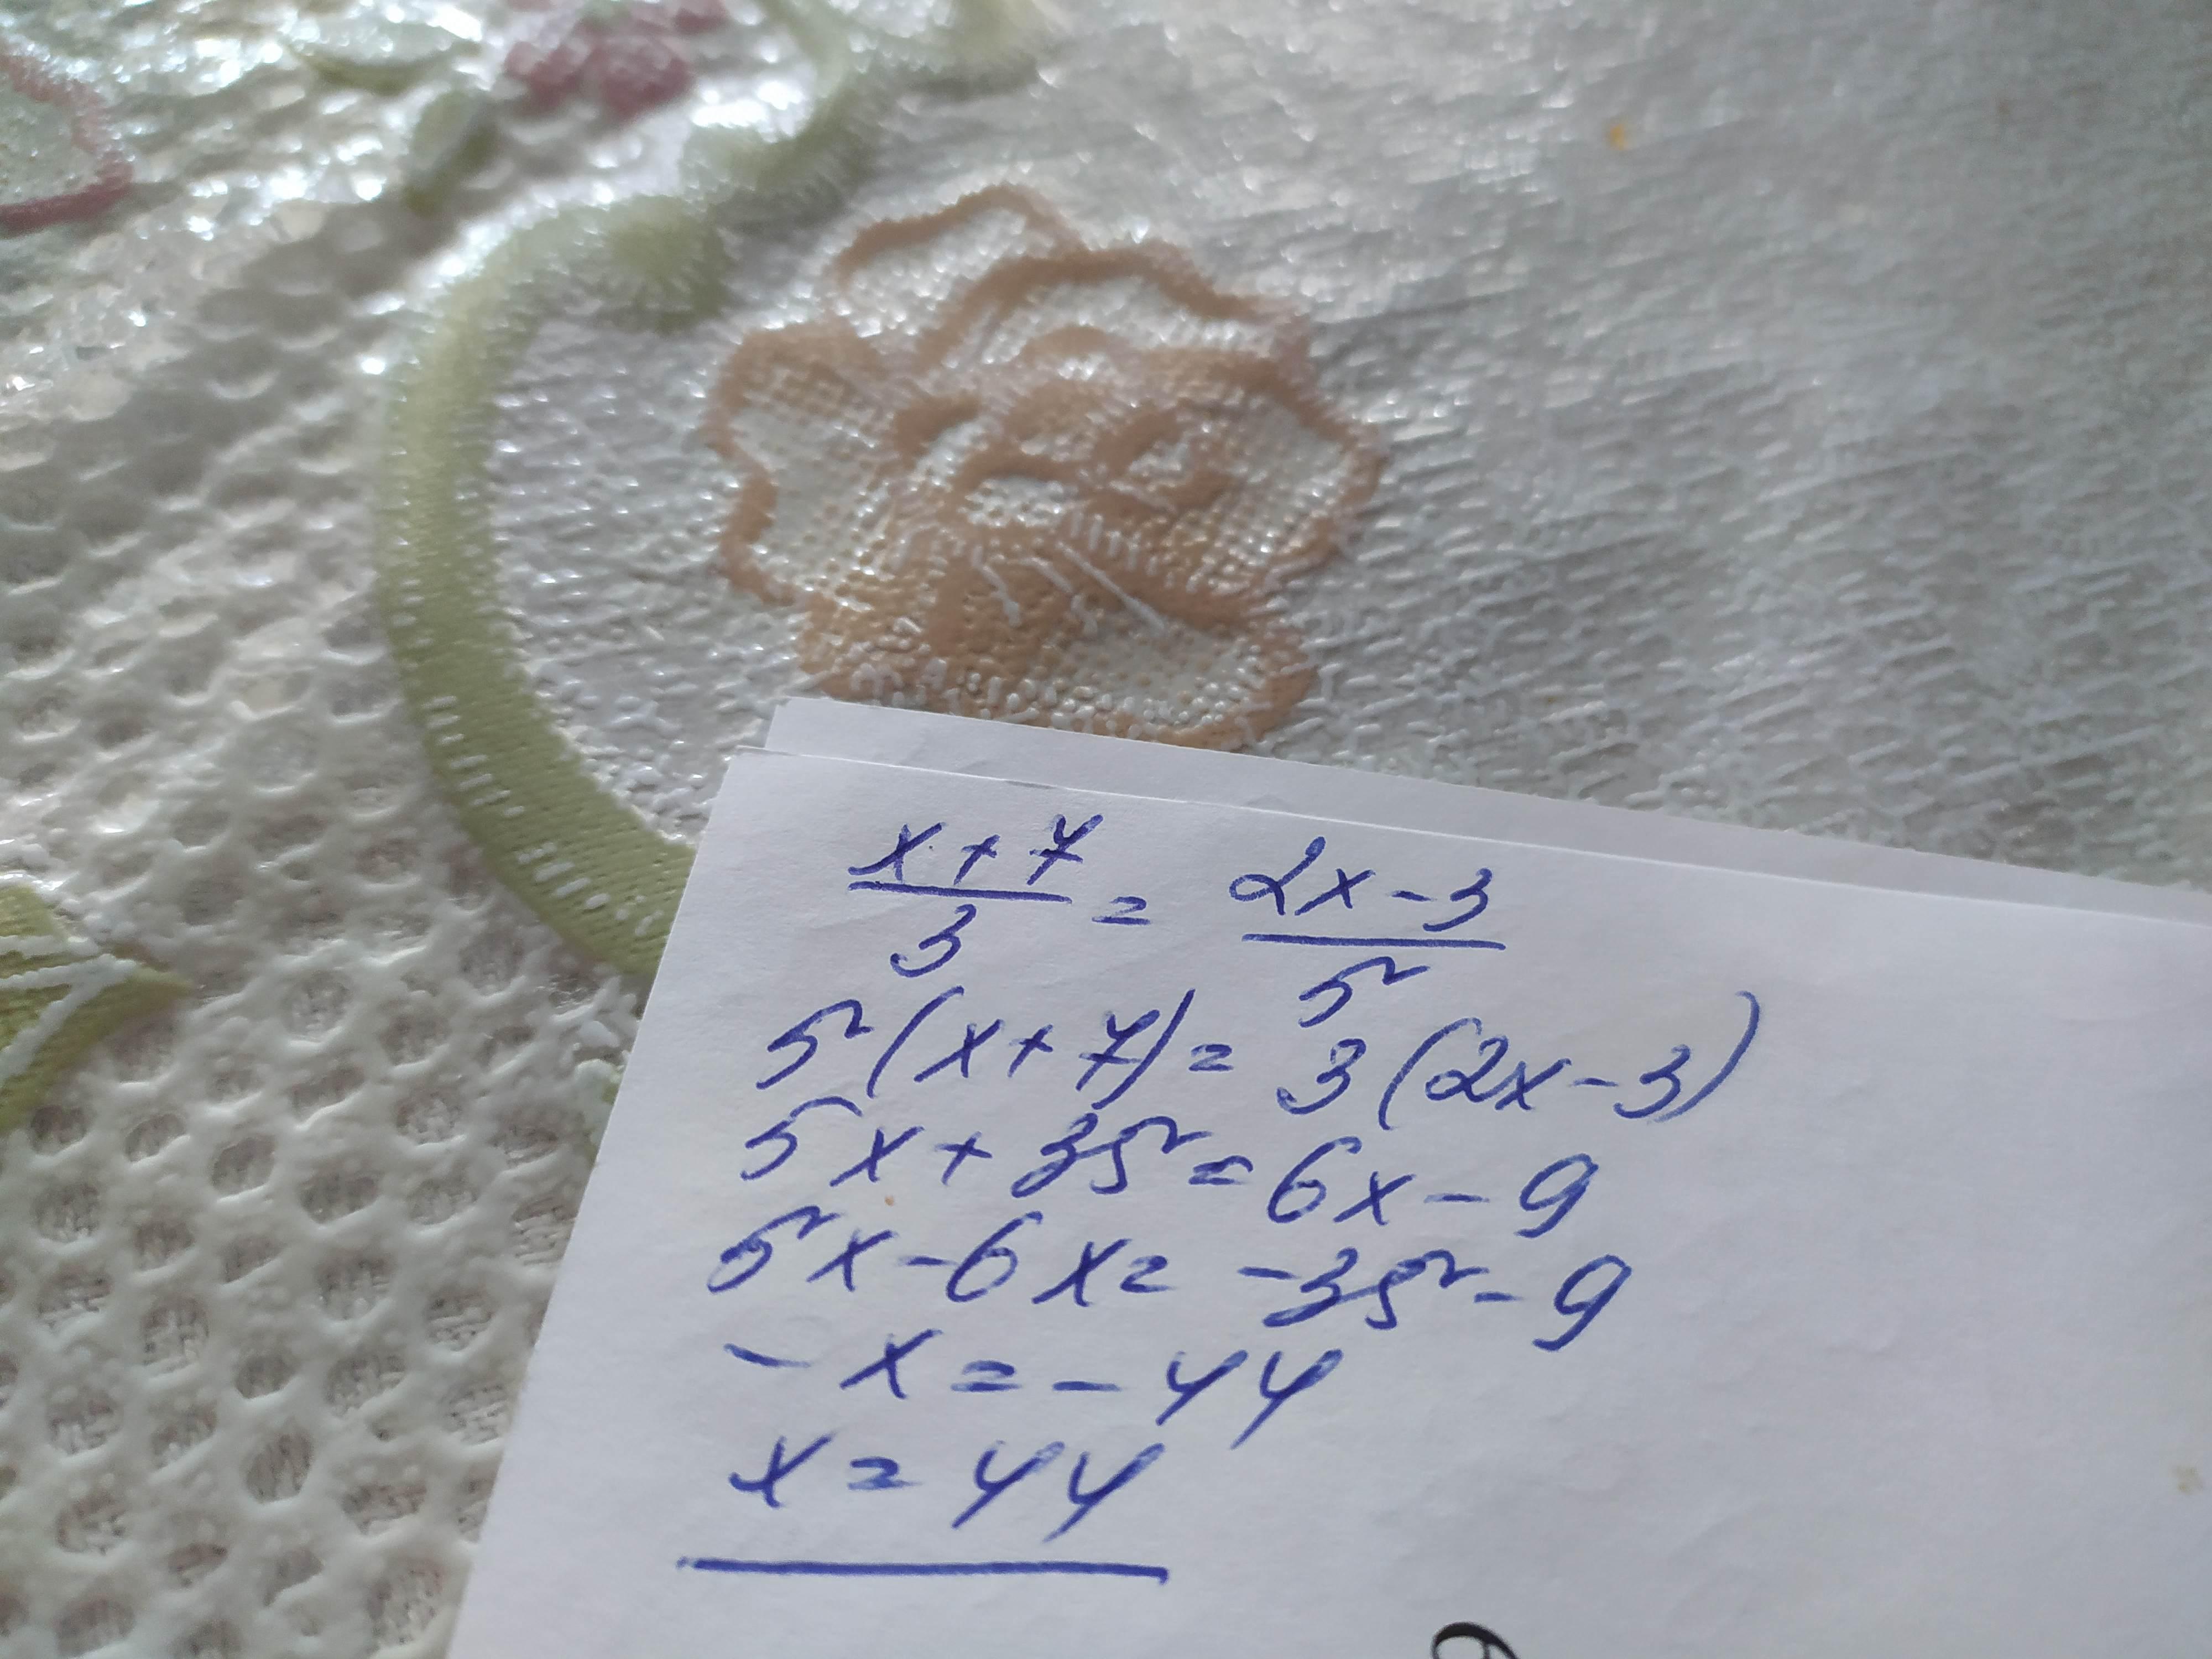 x+7/3 = 2x-3/5
5(x+7) = 3(2x-3)
5x+35=6x-9
5x-6x= -35-9
-x=-44
x=44